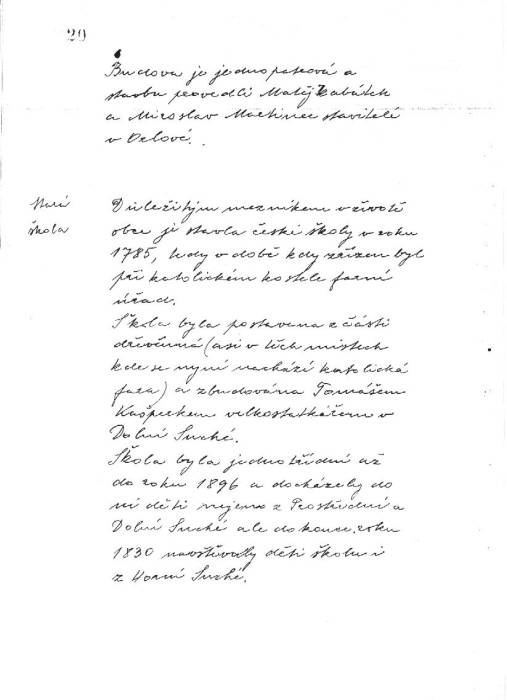 29
Budova je jednopatrová a
stavbu provedli Matěj Kabátek
a Miroslav Martinec stavitelé
v Orlové.
Stará
škola
Důležitým mezníkem v životě
obce je stavba české školy v roku
1785, tedy v době kdy zřízen byl
při katolickém kostele farní
úřad.
Škola byla postavena z části
dřevěnná (asi v těch místech
kde se nyní nachází katolická
fara) a zbudována Tomášem
Kašperkem velkostatkářem v
Dolní Suché.
Škola byla jednotřídní až
do roku 1896 a docházely do
ní děti nejeno z Prostřední a
Dolní Suché ale dokonce roku
1830 navštěvovaly děti školu i
z Horní Suché.